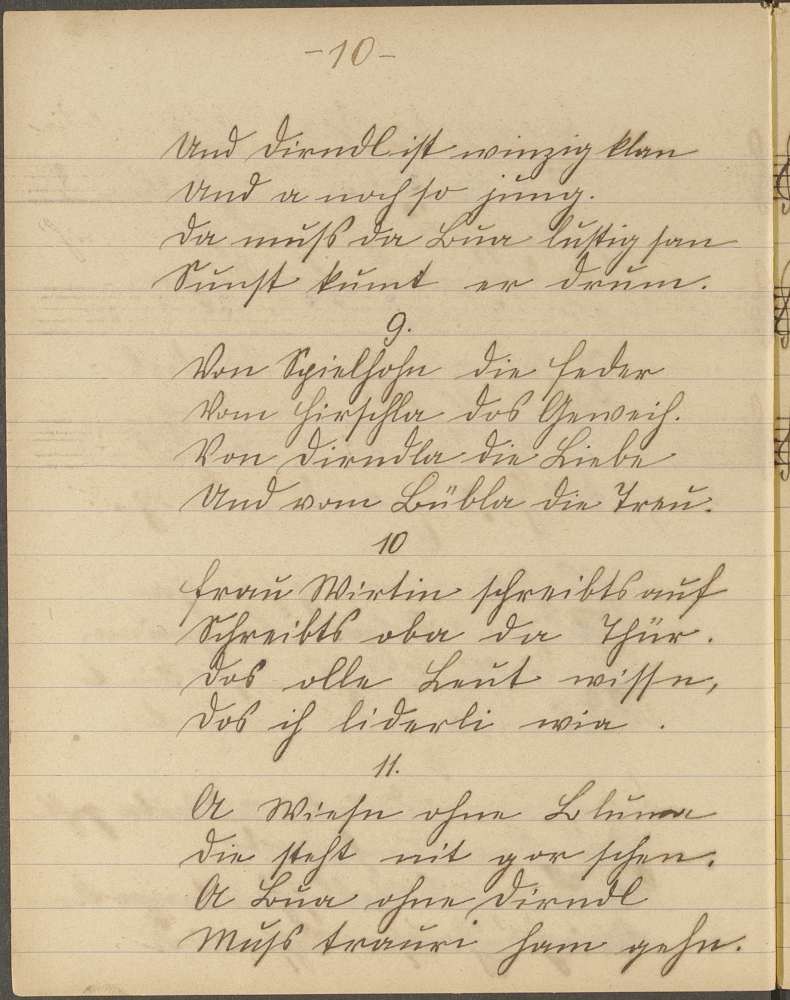 -10-
Und Dirndl ist winzig klan
Und a noch so jung.
Da muss da Bua lustig san
Sunst kumt er drum.
9.
Von Spielhohn die Feder
Vom Hirschla dos Geweih.
Von Dirndla die Liebe
Und vom Bübla die Treu.
10
Frau Wirtin schreibts auf
Schreibts oba da Thür.
Dos olle Leut wissn,
Dos ih liderli wia .
11.
A Wiesn ohne Bluma
Die steht nit gor schen.
A Bua ohne Dirndl
Muss trauri ham gehn.